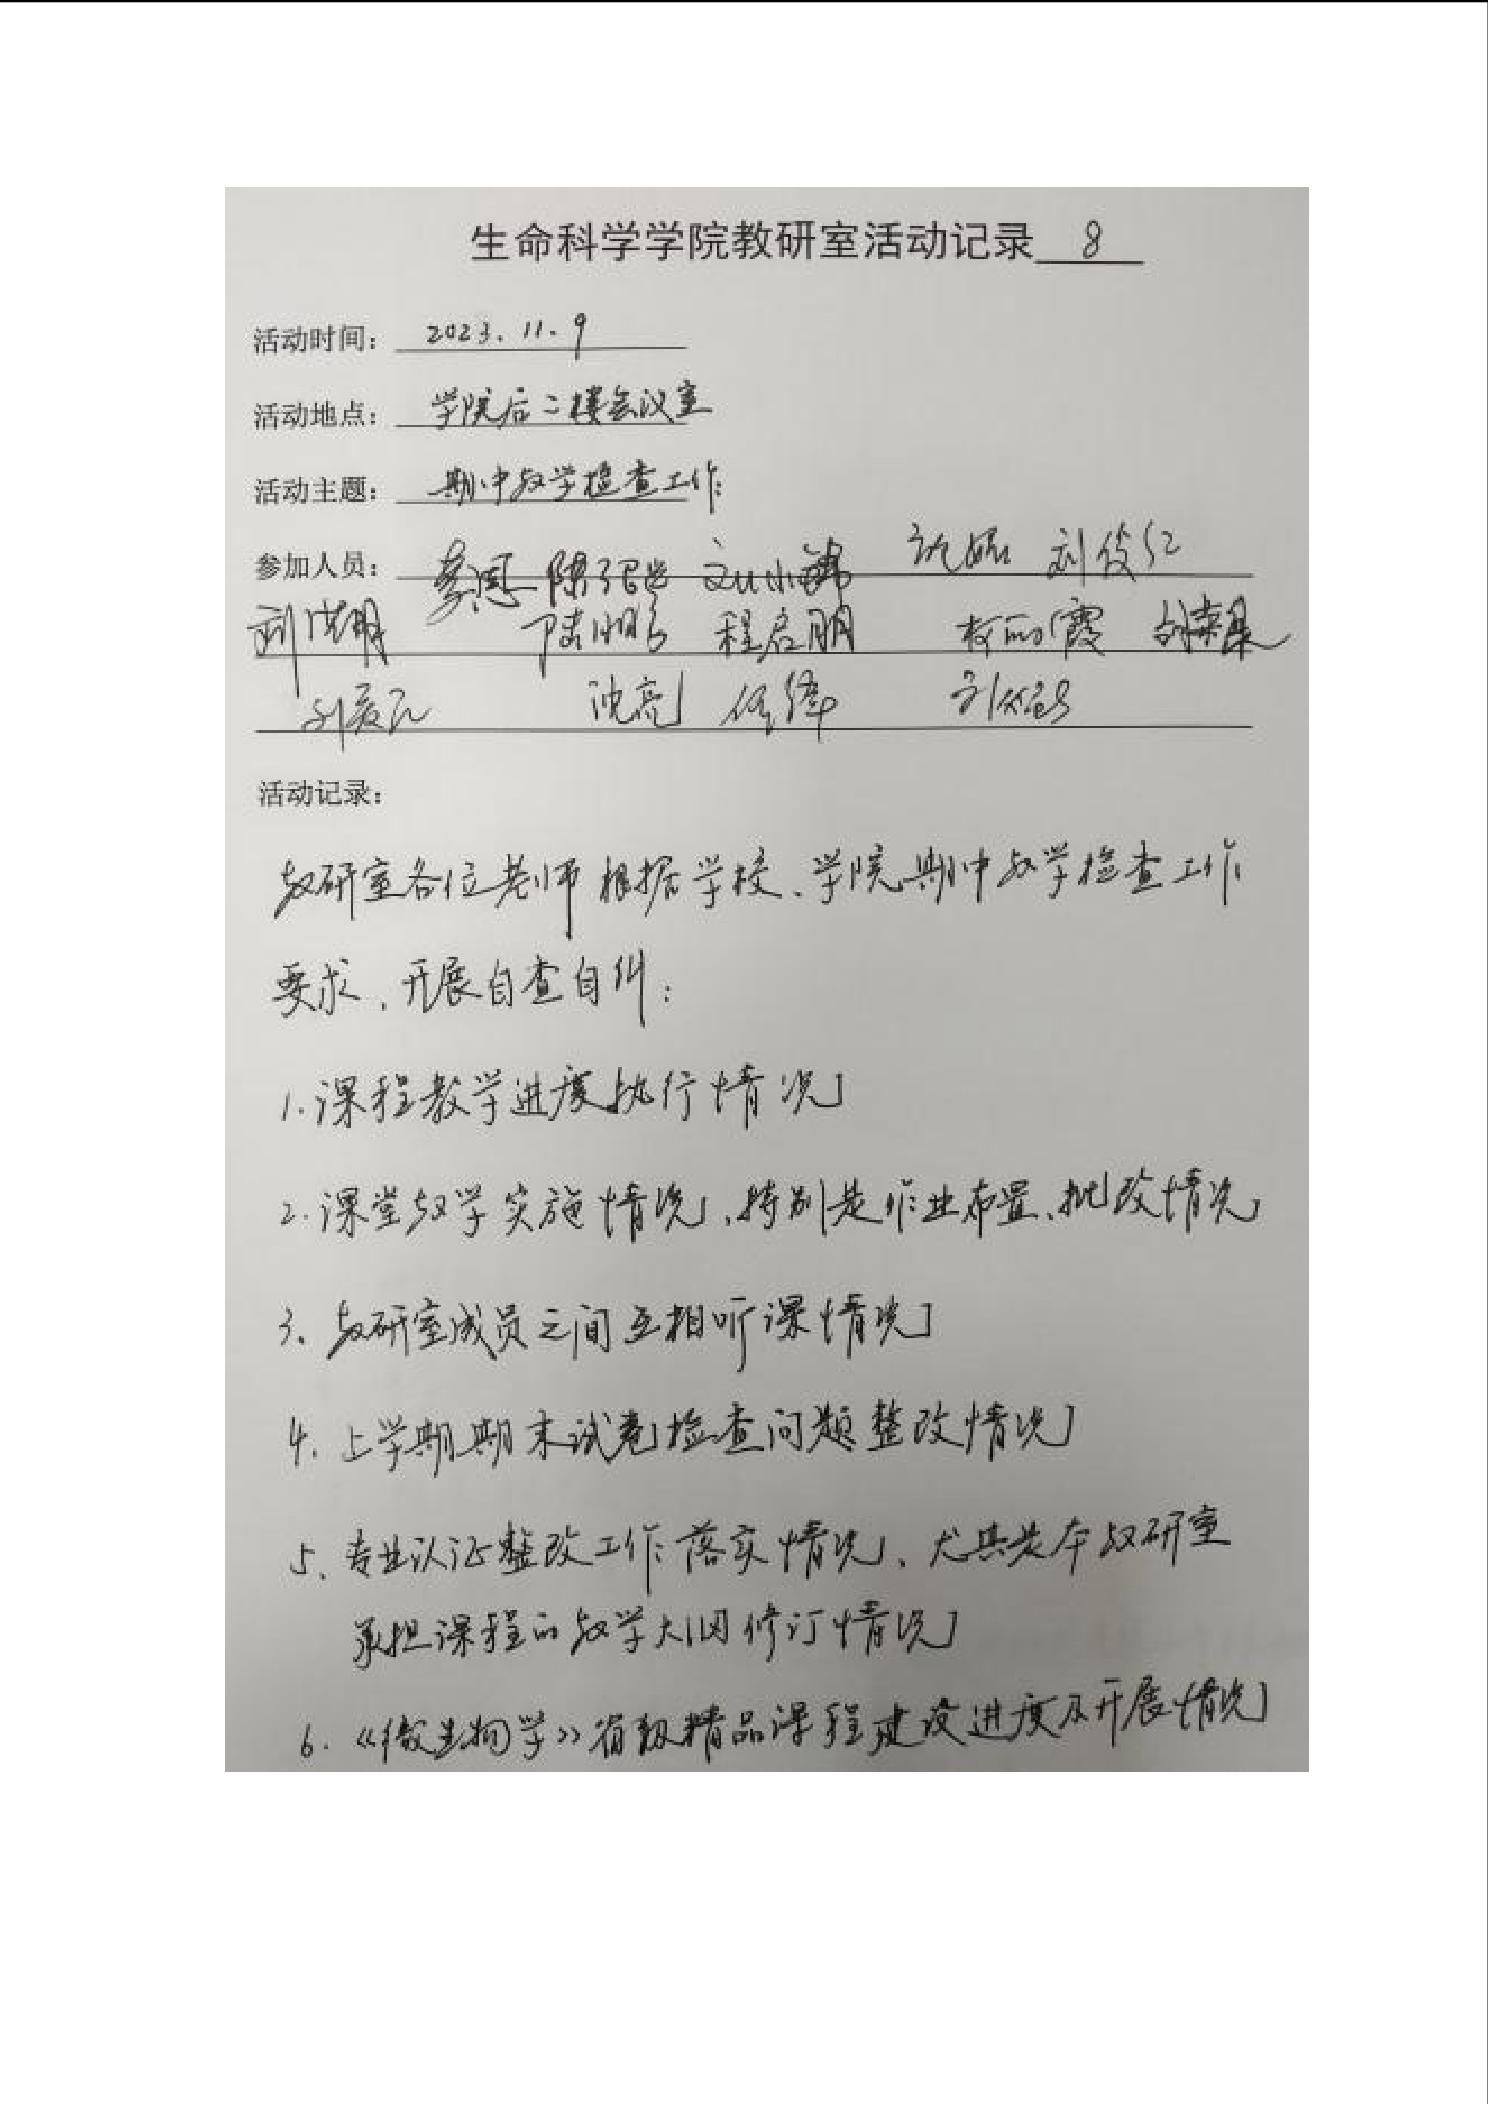 生命科学学院教研室活动记录 8
活动时间： 2023.11.9
活动地点： 学院后二楼会议室
活动主题： 期中教学检查工作
参加人员： 刘俊红
刘洪明 陆鹏 程启明 霞
沈亮 任绎
活动记录：
教研室各位老师根据学校、学院期中教学检查工作
要求，开展自查自纠：
1.课程教学进度执行情况
2.课堂教学实施情况，特别是作业布置、批改情况
3、教研室成员之间互相听课情况
4、上学期期末试卷检查问题整改情况
5、专业认证整改工作落实情况，尤其是本教研室
承担课程的教学大纲修订情况
6.《微生物学》省级精品课程建设进度及开展情况